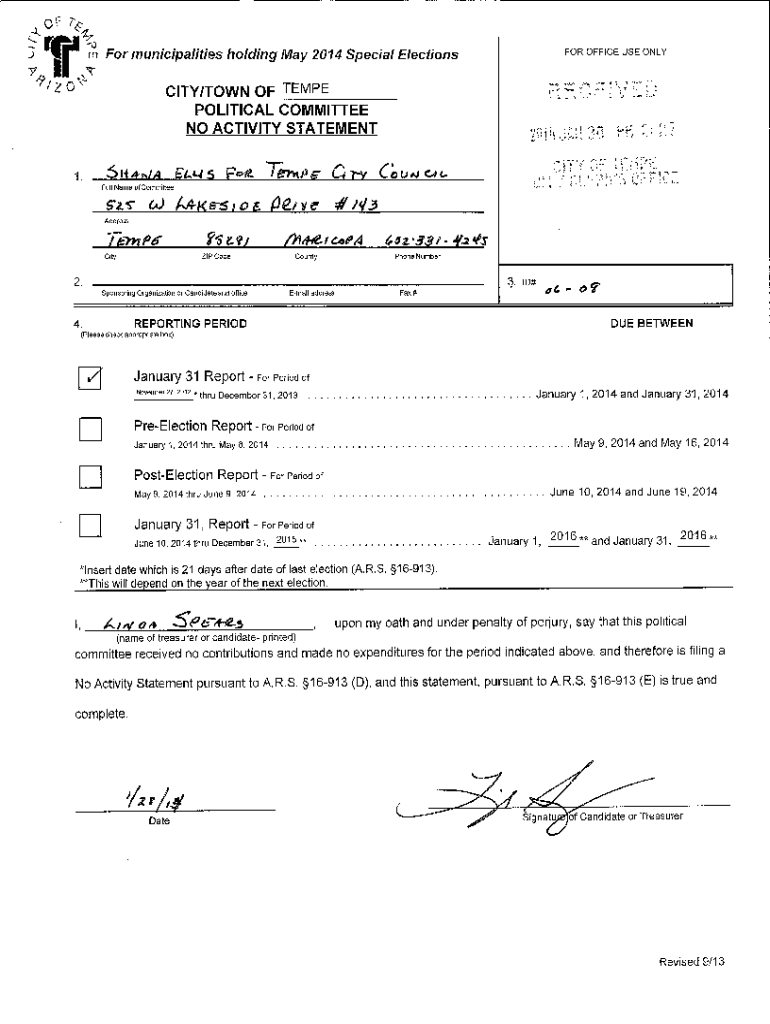 CITY OF TEMPE
ARIZONA
For municipalities holding May 2014 Special Elections
FOR OFFICE USE ONLY
CITY/TOWN OF TEMPE
POLITICAL COMMITTEE
NO ACTIVITY STATEMENT
RECEIVED
CITY OF TEMPE
CITY CLERK'S OFFICE
1. SHANA ELLIS FOR TEMPE CITY COUNCIL
Full Name of Committee
525 W LAKESIDE DRIVE #143
Address
TEMPE 85281 MARICOPA 602-331-4245
City ZIP Code County Phone Number
2.
Sponsoring Organization or Candidate and office E-mail address Fax #
3. ID# 06-08
4. REPORTING PERIOD DUE BETWEEN
(Please check appropriate box)
✓ January 31 Report - For Period of
November 27, 2012 * thru December 31, 2013 January 1, 2014 and January 31, 2014
Pre-Election Report - For Period of
January 1, 2014 thru May 8, 2014 May 9, 2014 and May 16, 2014
Post-Election Report - For Period of
May 9, 2014 thru June 9, 2014 June 10, 2014 and June 19, 2014
January 31, Report - For Period of
June 10, 2014 thru December 31, 2015 ** January 1, 2016 ** and January 31, 2016 **
*Insert date which is 21 days after date of last election (A.R.S. §16-913).
**This will depend on the year of the next election.
I, LINDA SPEARS, upon my oath and under penalty of perjury, say that this political
(name of treasurer or candidate- printed)
committee received no contributions and made no expenditures for the period indicated above, and therefore is filing a
No Activity Statement pursuant to A.R.S. §16-913 (D), and this statement, pursuant to A.R.S. §16-913 (E) is true and
complete.
1/28/14
Date
Signature of Candidate or Treasurer
Revised 9/13